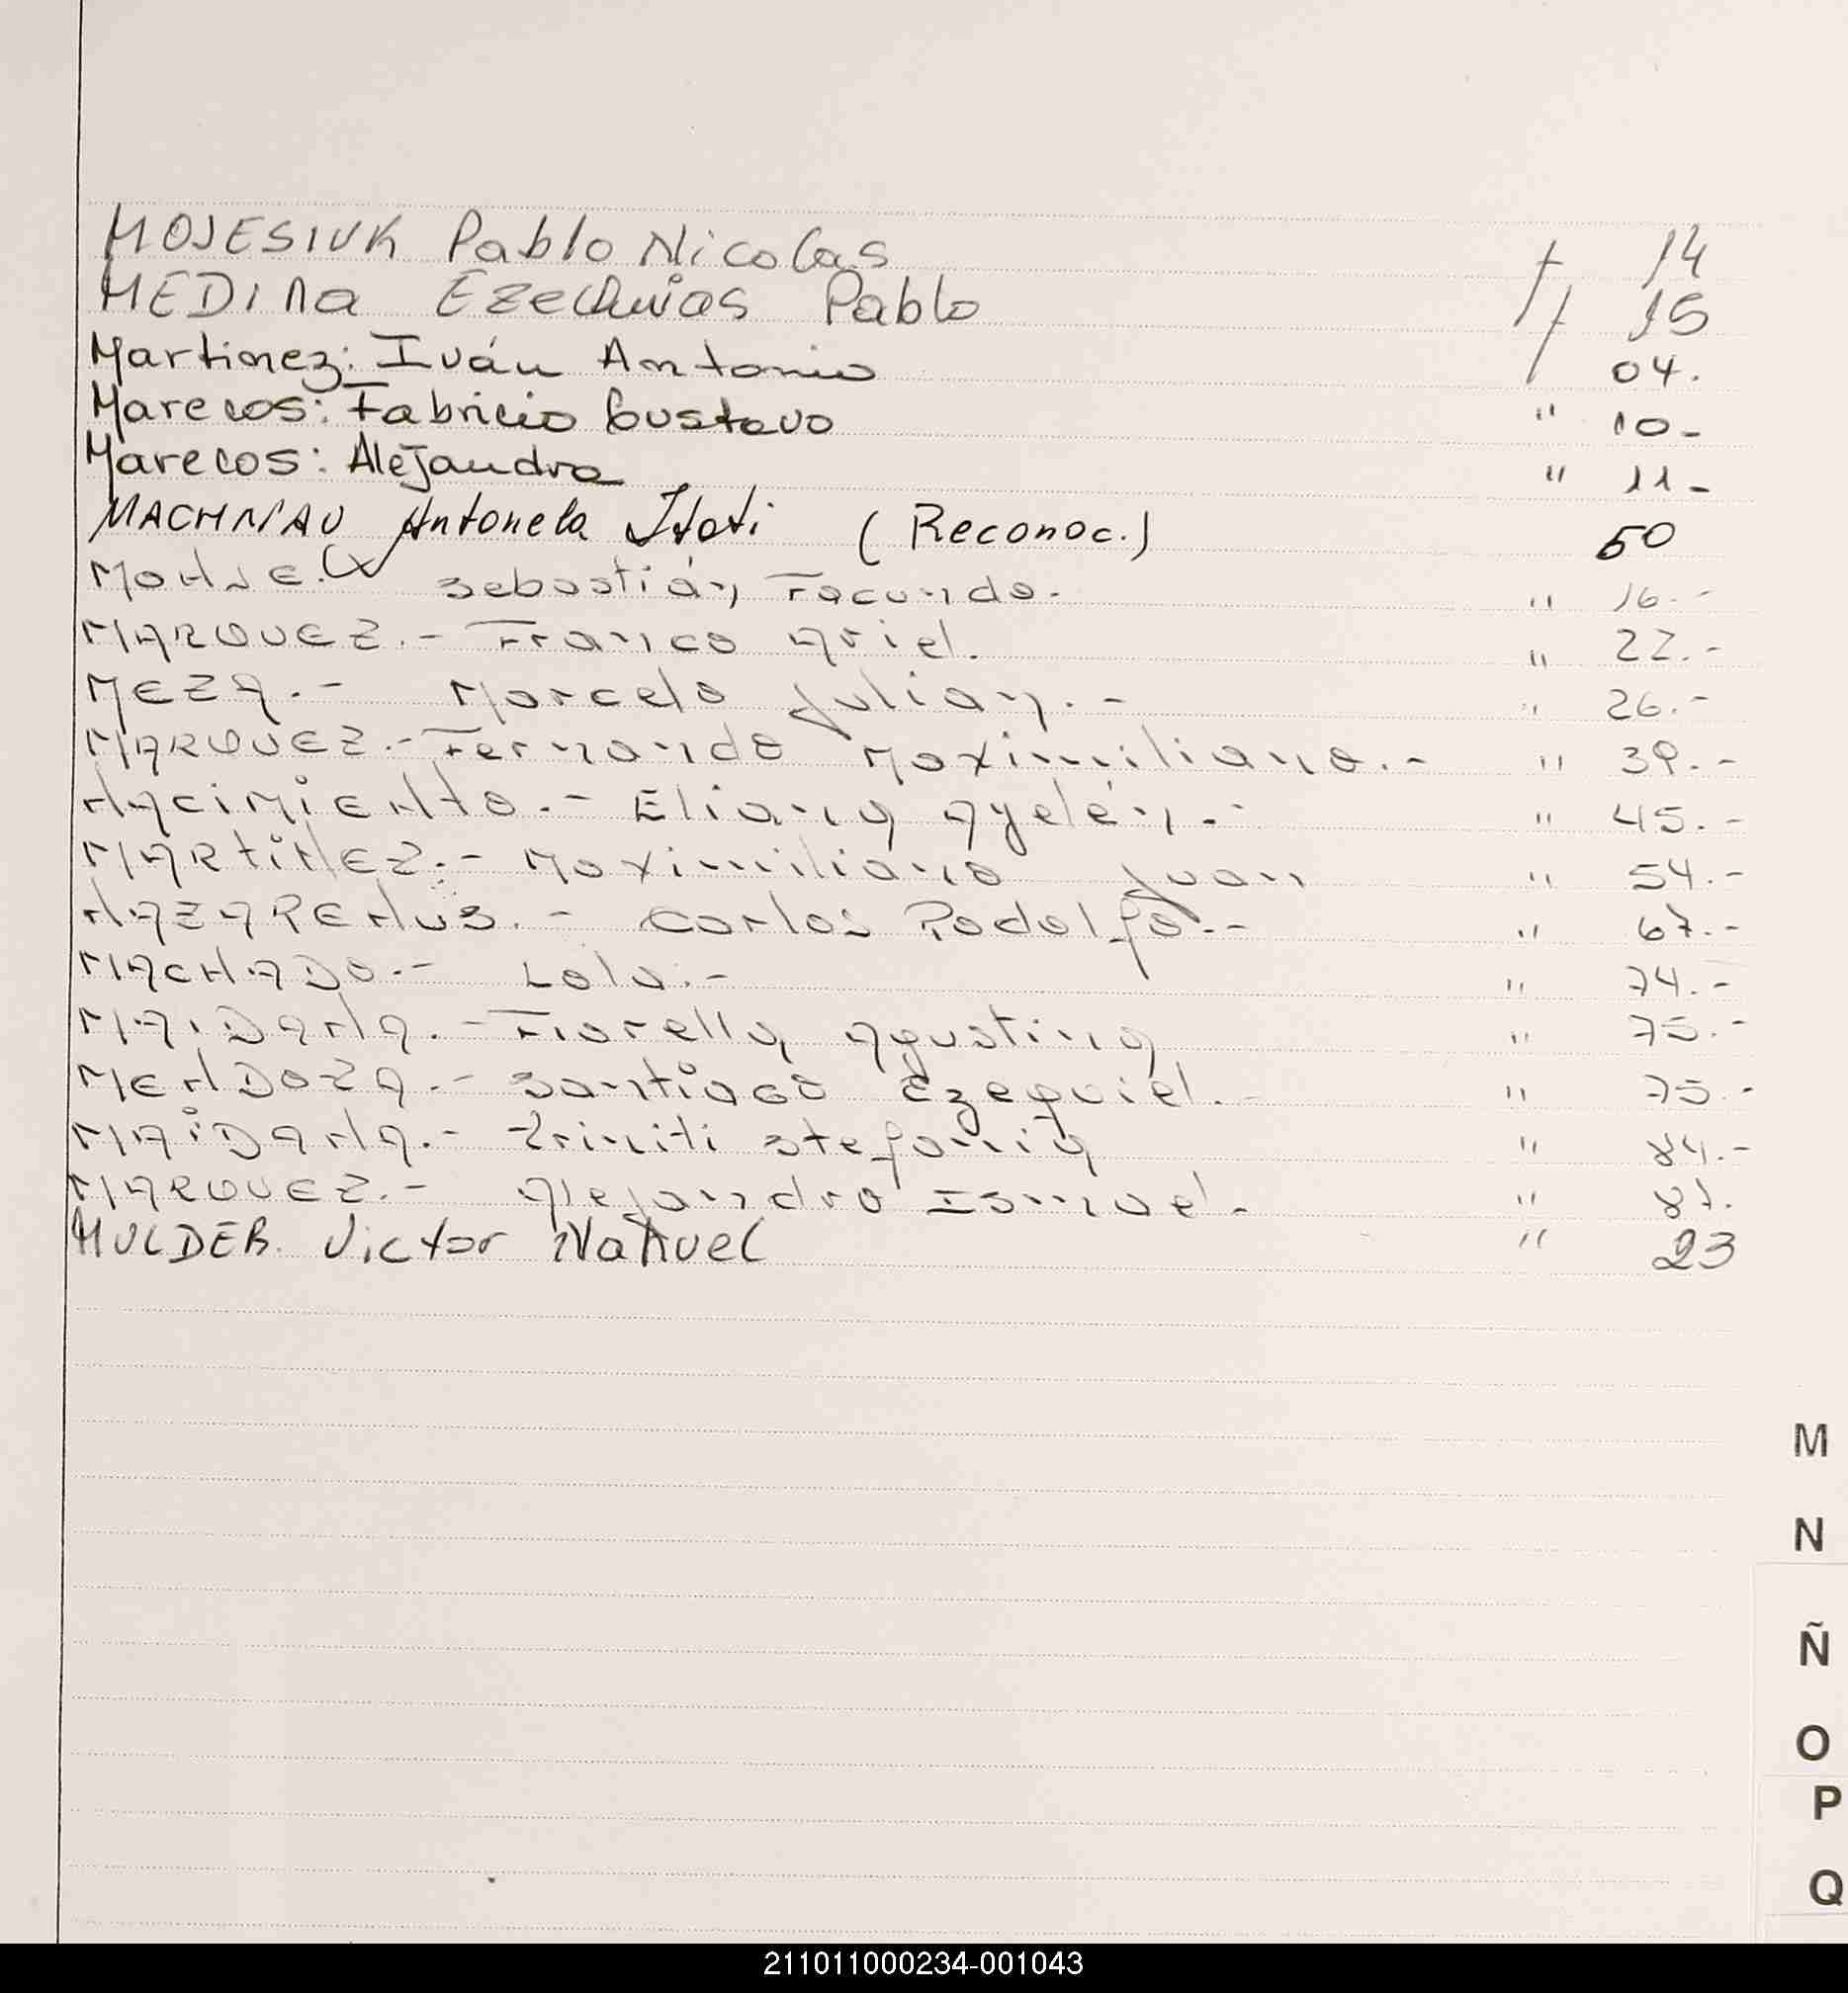 MOJESIUK Pablo Nicolas f 14
MEDINA Ezechuias Pablo f 15
Martinez: Iván Antonio / 04.
Marecos: Fabricio Gustavo " 10-
Marecos: Alejandra " 11-
MACHNIAU Antonela Itati (Reconoc.) 50
Sebastián Facundo. " 16.-
MARQUEZ.- Franco Ariel. " 22.-
MEZA.- Marcelo Julian.- " 26.-
MARQUEZ.- Fernando Maximiliano.- " 39.-
NACIMIENTO.- Eliana Ayelén.- " 45.-
MARTINEZ.- Maximiliano Juan " 54.-
NAZARENUS.- Carlos Rodolfo.- " 67.-
MACHADO.- Lola.- " 74.-
MAIDANA.- Fiorella Agustina " 75.-
MENDOZA.- Santiago Ezequiel.- " 75.-
MAIDANA.- Triniti Stefania " 84.-
MARQUEZ.- Alejandro Ismael.- " 87.
MULDER Victor Nahuel " 23
M
N
Ñ
O
P
Q
211011000234-001043